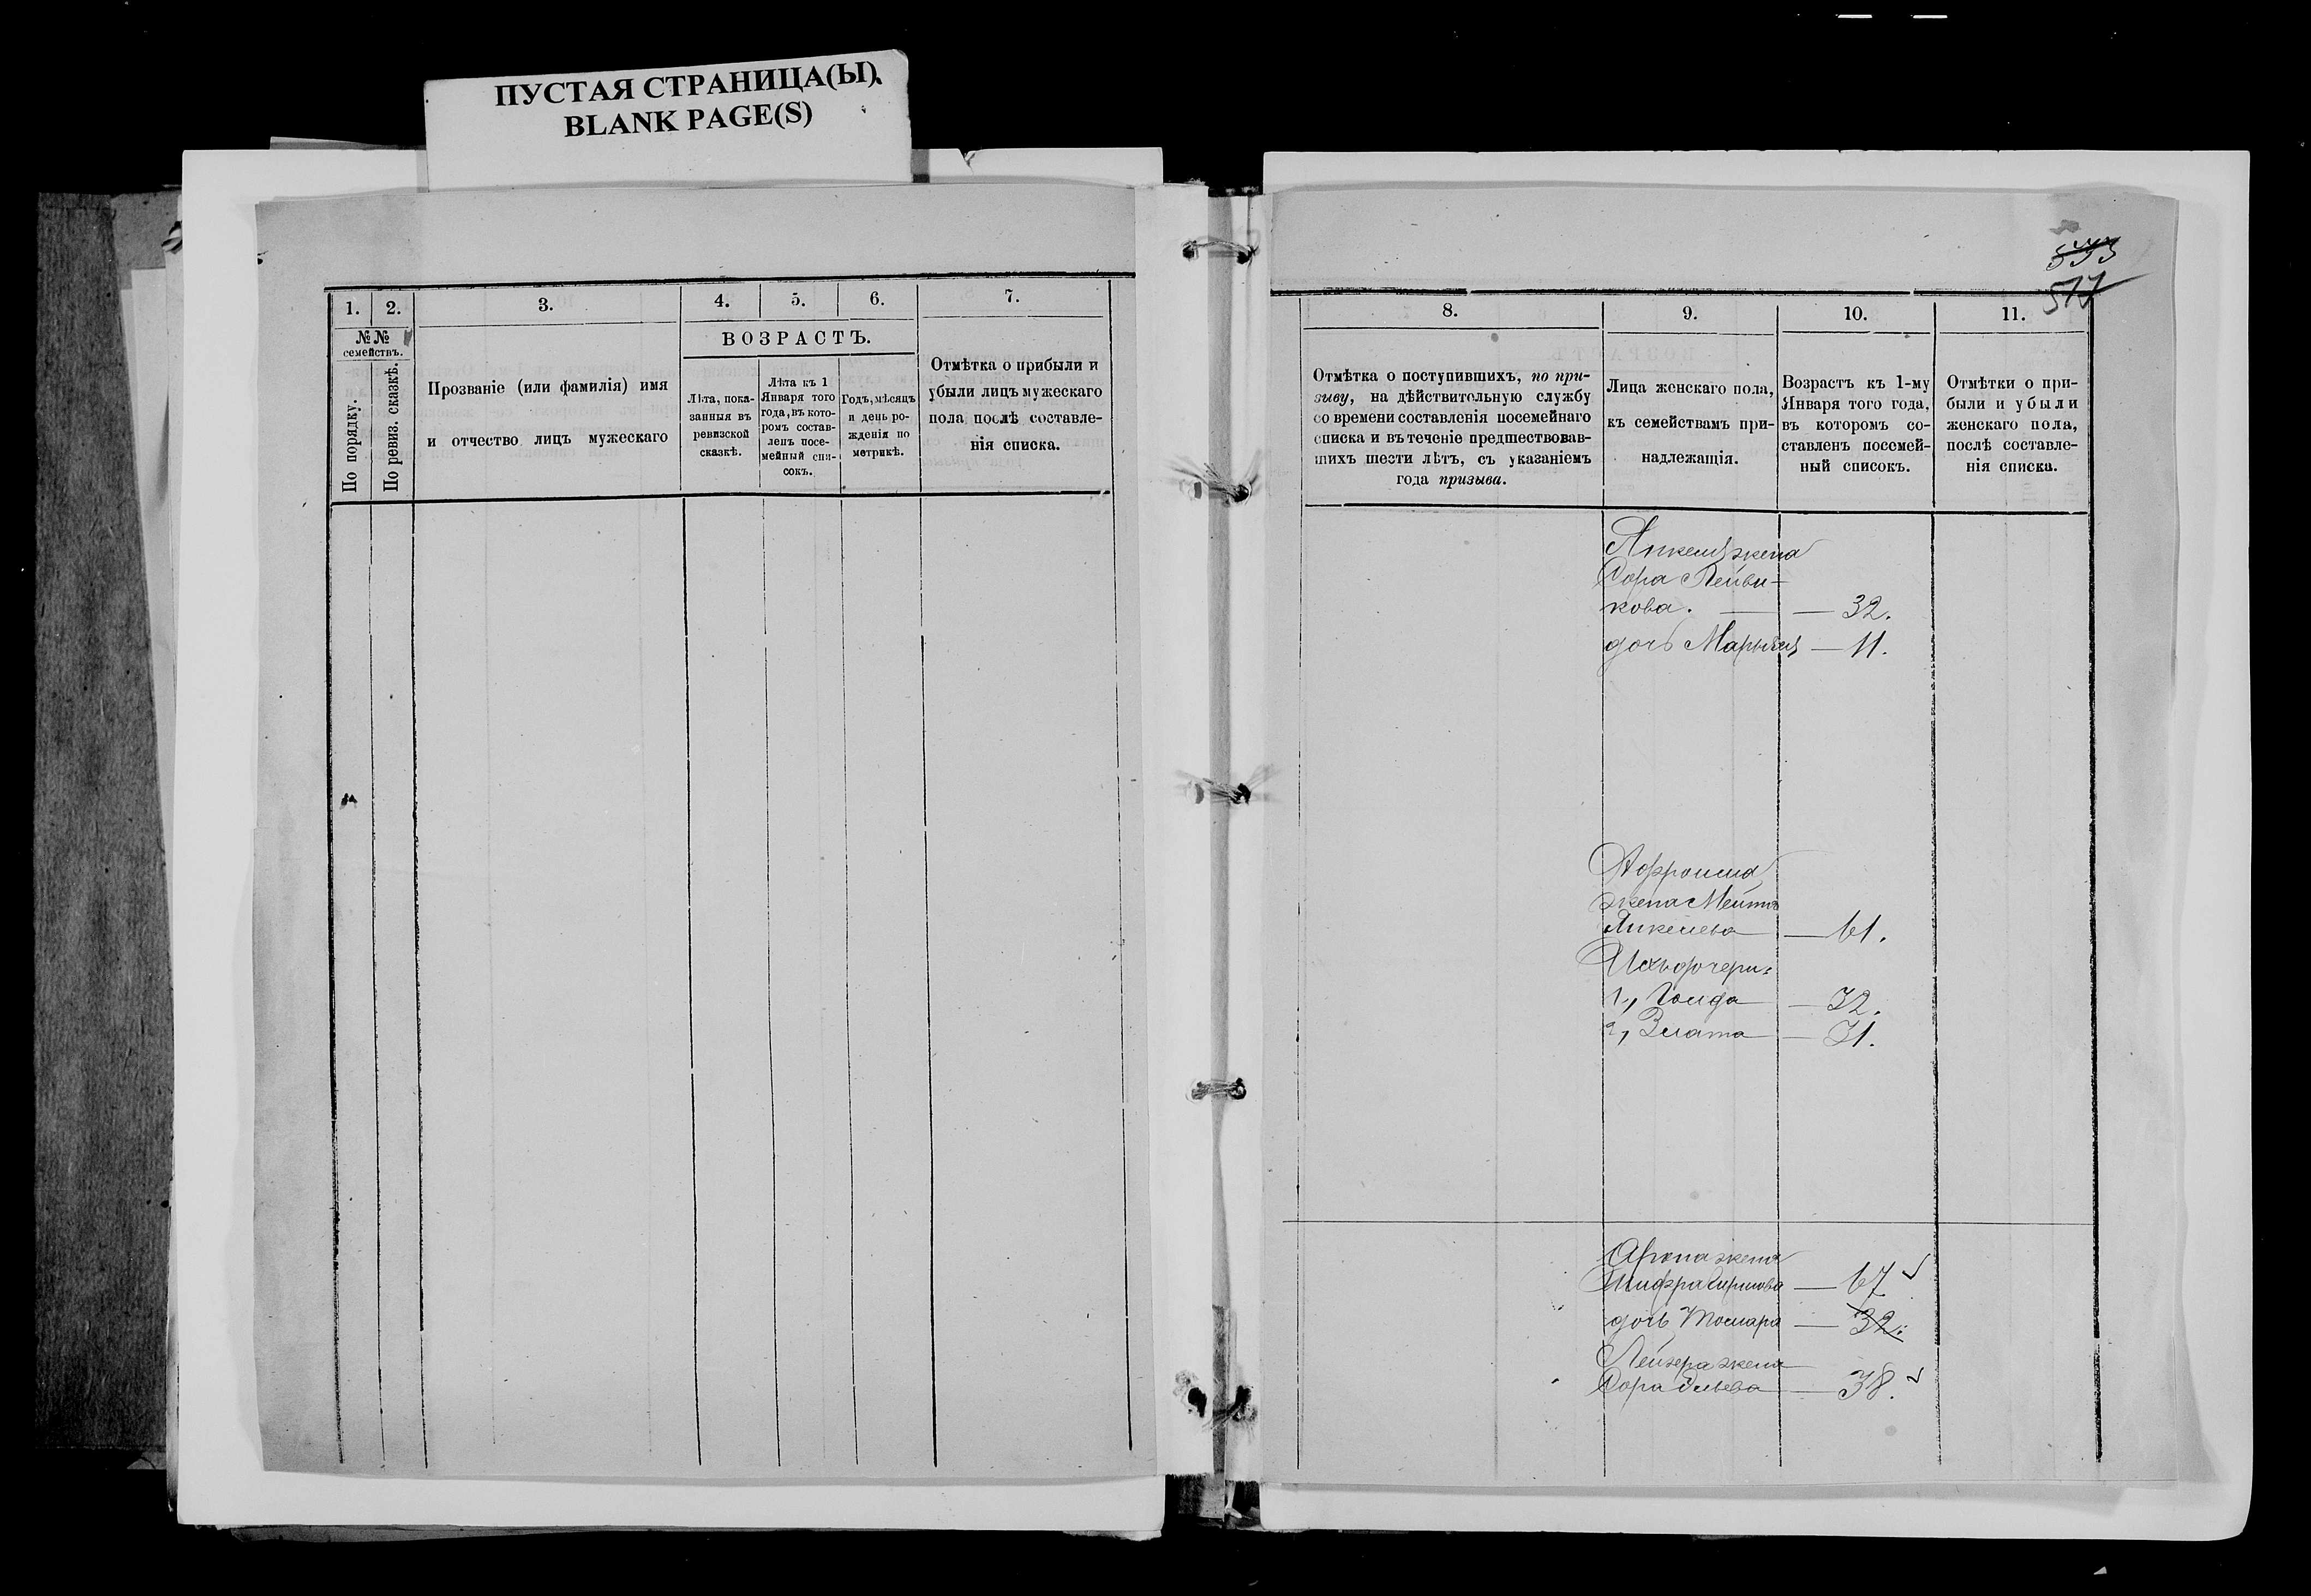 ПУСТАЯ СТРАНИЦА(Ы)
BLANK PAGE(S)
1.
2.
3.
4.
5.
6.
7.
№№
семействъ.
По порядку.
По ревиз. сказкѣ.
Прозваніе (или фамилія) имя
и отчество лицъ мужескаго
ВОЗРАСТЪ.
Лѣта, пока-
занныя въ
ревизской
сказкѣ.
Лѣта къ 1
Января того
года, въ кото-
ромъ состав-
ленъ посе-
мейный спи-
сокъ.
Годъ, мѣсяцъ
и день ро-
жденія по
метрикѣ.
Отмѣтка о прибыли и
убыли лицъ мужескаго
пола послѣ составле-
нія списка.
533
517
8.
9.
10.
11.
Отмѣтка о поступившихъ, по при-
зыву, на дѣйствительную службу
со времени составленія посемейнаго
списка и въ теченіе предшествовав-
шихъ шести лѣтъ, съ указаніемъ
года призыва.
Лица женскаго пола,
къ семействамъ при-
надлежащія.
Возрастъ къ 1-му
Января того года,
въ которомъ со-
ставленъ посемей-
ный списокъ.
Отмѣтки о при-
были и убыли
женскаго пола,
послѣ составле-
нія списка.
Янкеля жена
Сора Лейви-
кова. — 32.
дочь — 11.
жена
Янкелева — 61.
Ихъ дочери:
1, Голда — 32.
2, Злата — 31.
Арона жена
Шифра — 67
дочь — 32.
Лейзера жена
Сора — 38.